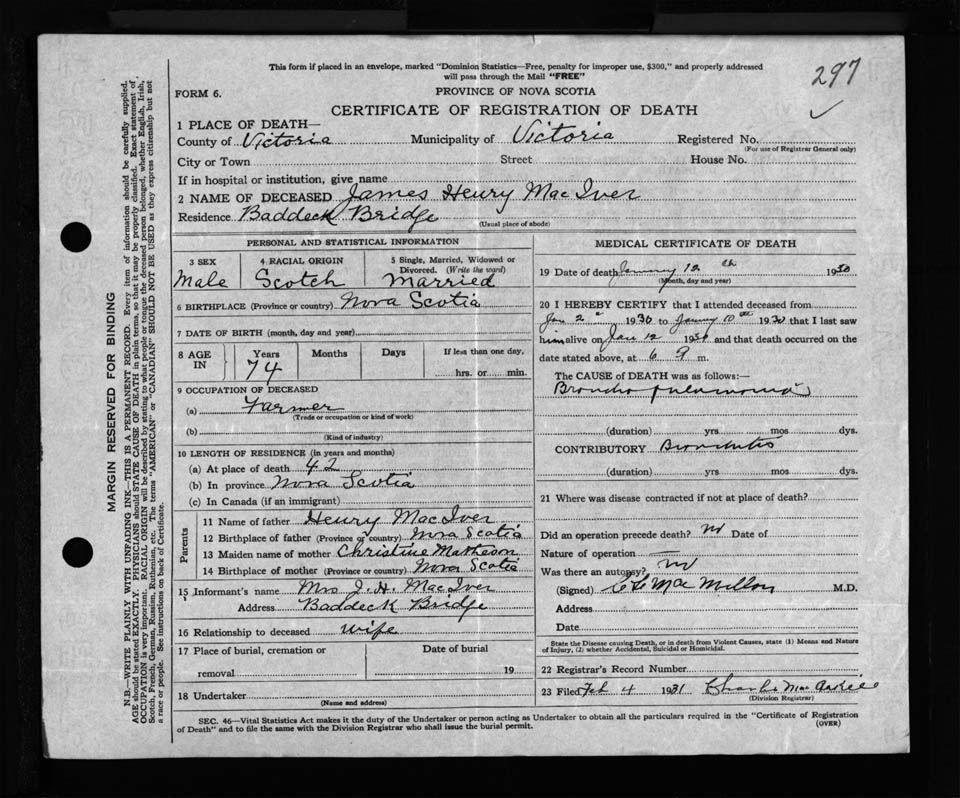 This form if placed in an envelope, marked "Dominion Statistics—Free, penalty for improper use, $300," and properly addressed
will pass through the Mail "FREE"
297
FORM 6.
PROVINCE OF NOVA SCOTIA
CERTIFICATE OF REGISTRATION OF DEATH
1 PLACE OF DEATH—
County of Victoria Municipality of Victoria Registered No.
(For use of Registrar General only)
City or Town Street House No.
If in hospital or institution, give name
2 NAME OF DECEASED James Henry MacIver
Residence Baddeck Bridge
(Usual place of abode)
MARGIN RESERVED FOR BINDING
N.B.—WRITE PLAINLY WITH UNFADING INK—THIS IS A PERMANENT RECORD. Every item of information should be carefully supplied.
AGE should be stated EXACTLY. PHYSICIANS should STATE CAUSE OF DEATH in plain terms, so that it may be properly classified. Exact statement of
OCCUPATION is very important. RACIAL ORIGIN will be described by stating to what people or tongue the deceased person belonged, whether English, Irish,
Scotch, French, German, Russian, Ruthenian, etc. The terms "AMERICAN" or "CANADIAN" SHOULD NOT BE USED as they express citizenship but not
a race or people. See instructions on back of Certificate.
PERSONAL AND STATISTICAL INFORMATION
3 SEX
Male
4 RACIAL ORIGIN
Scotch
5 Single, Married, Widowed or
Divorced. (Write the word)
Married
6 BIRTHPLACE (Province or country) Nova Scotia
7 DATE OF BIRTH (month, day and year)
8 AGE
IN
Years
74
Months
Days
If less than one day,
hrs. or min.
9 OCCUPATION OF DECEASED
(a) Farmer
(Trade or occupation or kind of work)
(b)
(Kind of industry)
10 LENGTH OF RESIDENCE (in years and months)
(a) At place of death 42
(b) In province Nova Scotia
(c) In Canada (if an immigrant)
Parents
11 Name of father Henry MacIver
12 Birthplace of father (Province or country) Nova Scotia
13 Maiden name of mother Christine Matheson
14 Birthplace of mother (Province or country) Nova Scotia
15 Informant's name Mrs J. H. MacIver
Address Baddeck Bridge
16 Relationship to deceased wife
17 Place of burial, cremation or
removal
Date of burial
19
18 Undertaker
(Name and address)
MEDICAL CERTIFICATE OF DEATH
19 Date of death January 12th 1930
(Month, day and year)
20 I HEREBY CERTIFY that I attended deceased from
Jan 2 1930 to 10th 1930 that I last saw
him alive on Jan 12 1930 and that death occurred on the
date stated above, at 6 m.
The CAUSE of DEATH was as follows:—
Broncho pneumonia
(duration) yrs mos dys.
CONTRIBUTORY Bronchitis
(duration) yrs. mos. dys.
21 Where was disease contracted if not at place of death?
Did an operation precede death? no Date of
Nature of operation
Was there an autopsy? no
(Signed) MacMillan M.D.
Address
Date
State the Disease causing Death, or in death from Violent Causes, state (1) Means and Nature
of Injury, (2) whether Accidental, Suicidal or Homicidal.
22 Registrar's Record Number
23 Filed Feb 4 1931 Charles
(Division Registrar)
SEC. 46—Vital Statistics Act makes it the duty of the Undertaker or person acting as Undertaker to obtain all the particulars required in the "Certificate of Registration
of Death" and to file the same with the Division Registrar who shall issue the burial permit.
(OVER)